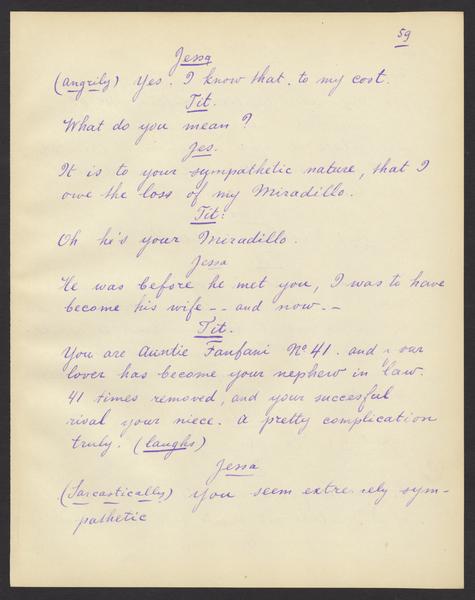 59
Jessa
(angrily) Yes. I know that. to my cost.
Tit.
What do you mean?
Jes.
It is to your sympathetic nature, that I
owe the loss of my Miradillo.
Tit:
Oh he's your Miradillo.
Jessa
He was before he met you, I was to have
become his wife -- and now. --
Tit.
You are Auntie Fanfani No 41. and your
lover has become your nephew in law.
41 times removed, and your succesful
rival your niece. A pretty complication
truly. (laughs)
Jessa
(Sarcastically) You seem extremely sym-
pathetic